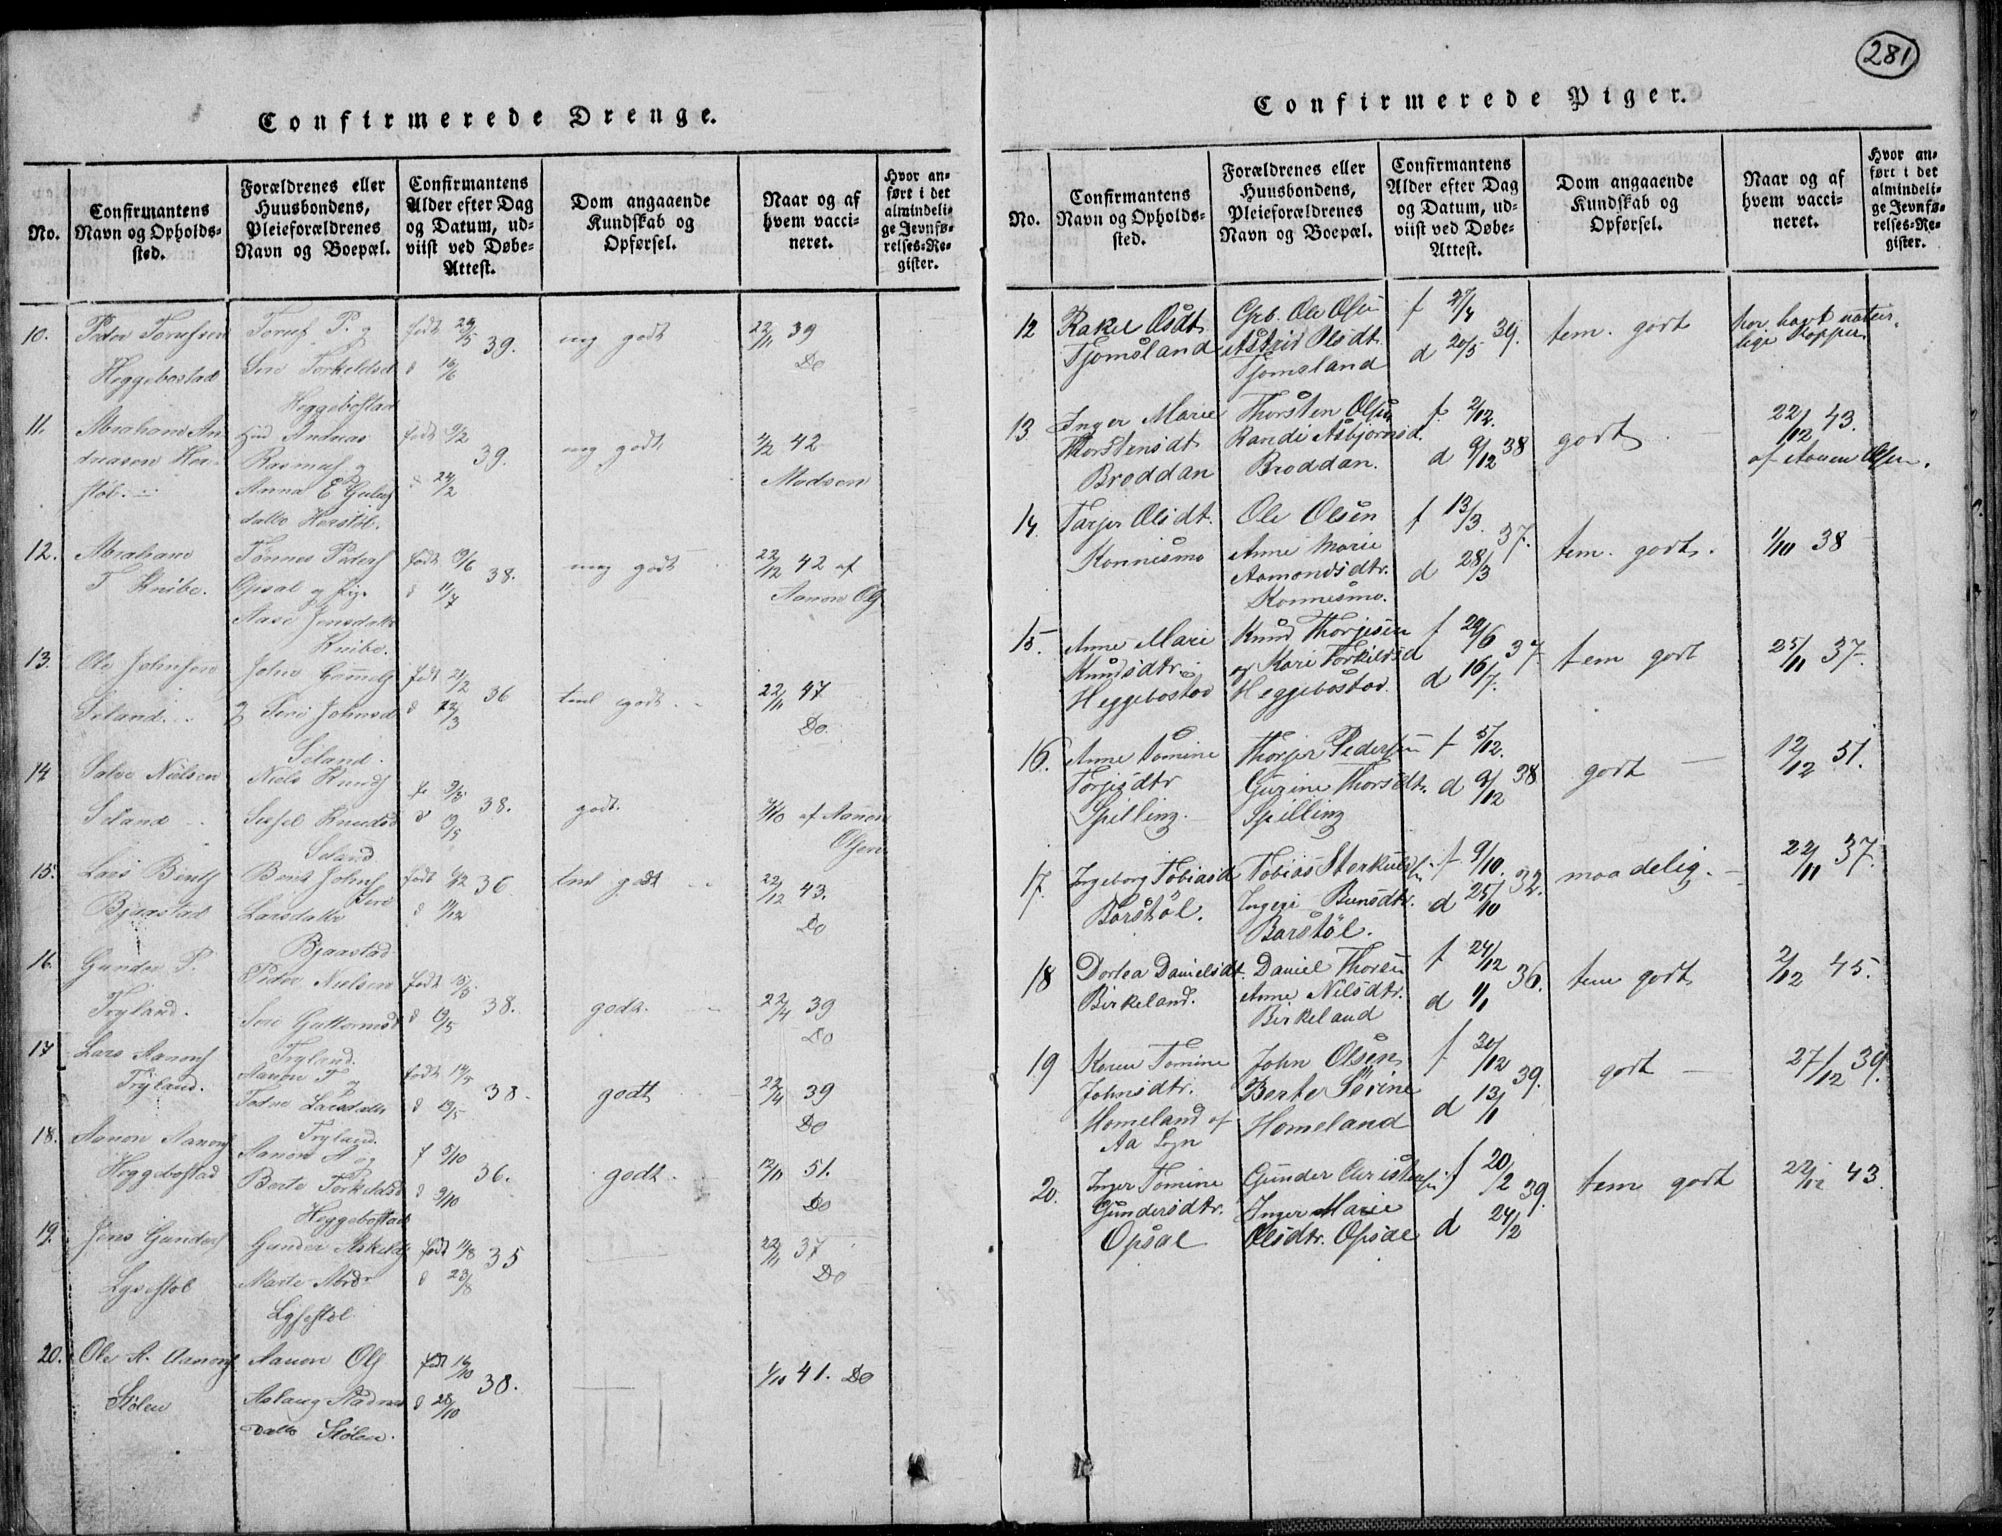 281
Confirmerede Drenge.
No.
Confirmantens
Navn og Opholds-
sted.
Forældrenes eller
Huusbondens,
Pleieforældrenes
Navn og Boepæl.
Confirmantens
Alder efter Dag
og Datum, ud-
viist ved Døbe-
Attest.
Dom angaaende
Kundskab og
Opførsel.
Naar og af
hvem vacci-
neret.
Hvor an-
ført i det
almindeli-
ge Jevnfø-
relses-Re-
gister.
10.
Heggebostad
Heggebostad
39.
godt
22/11 39
Do
11.
Abraham An
Anna E
39.
godt
42
Madsen
12.
Abraham
T Knibe.
Tønnes Peders
Opsal og
Aase Jensdatter
Knibe.
38.
meg godt
22/12 42 af
Aanon Ols
13.
Ole Johnsen
Seland
Seland.
36
teml godt
22/11 47
Do.
14
Salve Nielsen
Seland
Niels Knuds
Sissel Knudsd
Seland
38.
godt.
af Aanon
Olsen
15.
Lars Bents
Bjaastad
Bent Johns
Larsdatter
Bjaastad
36
teml godt
22/12 43.
Do
16.
Gunder P.
Tryland.
Peder Nielsen
Siri Guttormsd
Tryland.
38.
godt.
22/4 39
Do
17
Lars Aanons
Tryland.
Aanon T og
Larsdatter
Tryland.
38.
godt
22/4 39
Do
18.
Aanon Aanons
Heggebostad
Aanon A og
Berte Torkildsd
Heggebostad
f 5/10
d 9/10
36.
godt.
12/11 51.
Do
19.
Jens Gunders
Lysestøl
Gunder Askilds
Marte
Lysestøl.
35
22/11 37
Do
20.
Ole A. Aanons
Stølen
Aanon Ols
Aslaug
datter Stølen.
38.
1/10 41. Do
Confirmerede Piger.
No.
Confirmantens
Navn og Opholds-
sted.
Forældrenes eller
Huusbondens,
Pleieforældrenes
Navn og Boepæl.
Confirmantens
Alder efter Dag
og Datum, ud-
viist ved Døbe-
Attest.
Dom angaaende
Kundskab og
Opførsel.
Naar og af
hvem vacci-
neret.
Hvor an-
ført i det
almindeli-
ge Jevnfø-
relses-Re-
gister.
12
Rakel Olsdt
Tjomsland
Grb. Ole Olsen
Astrid Olsdt.
Tjomsland
f 27/4
d 20/5 39.
tem. godt
har havt natur-
lige Kopper
13
Inger Marie
Thorstensdt
Broddan
Thorsten Olsen
Randi Asbjørnsd.
Broddan.
f 2/12.
d 9/12 38
godt
22/12 43.
af Aanen Olsen.
14
Tarjer Olsdt.
Konnesmo
Ole Olsen
Anne Marie
Aamondsdtr.
Konnesmo.
f 13/3.
d 28/3 37.
tem. godt.
1/10 38
15.
Anne Mari
Knudsdtr.
Heggebostad
Knud Thorjesen
og Kari Torkildsd
Heggebostad.
f 29/6
d 16/7. 37.
tem godt
25/11 37.
16.
Anne Tomine
Torjesdtr
Spilling.
Thorjer Pedersen
Gurine Thorsdtr.
Spilling
f 5/12.
d 9/12 38
godt
12/12 51.
17.
Ingeborg Tobiasd
Barstøl.
Tobias
Barstøl.
f 9/10.
d 25/10 32.
maadelig.
22/11 37.
18
Dortea Danielsdt.
Birkeland.
Daniel Thorsen
Anne Nilsdtr.
Birkeland
f 24/12
d 1/1 36.
tem godt
2/12 45.
19
Karen Tomine
Johnsdtr.
Homeland af
Aa Sogn
John Olsen
Berte Serine
Homeland
f 20/12
d 13/1 39.
godt
27/12 39.
20.
Inger Tomine
Gundersdtr.
Opsal
Gunder Christensen
Inger Marie
Olsdtr. Opsal
f 20/2
d 24/2 39.
tem godt
22/12 43.